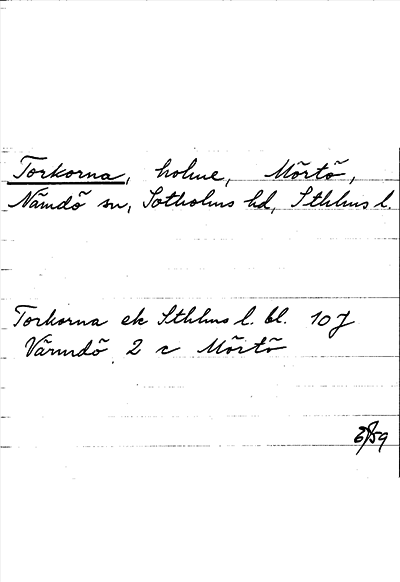 Torkorna, holme, Mörtö,
Nämdö sn, Sotholms hd, Sthlms l.
Torkorna ek Sthlms l. bl. 10 J
Värmdö 2 c Mörtö